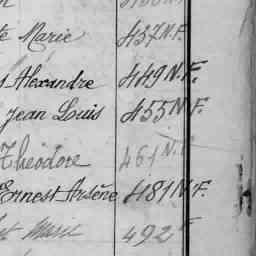 te Marie 437 N.F.
s Alexandre 449 N.F.
Jean Louis 455 N.F.
Théodore 461 N.
Ernest Arsène 481 N F.
492 F